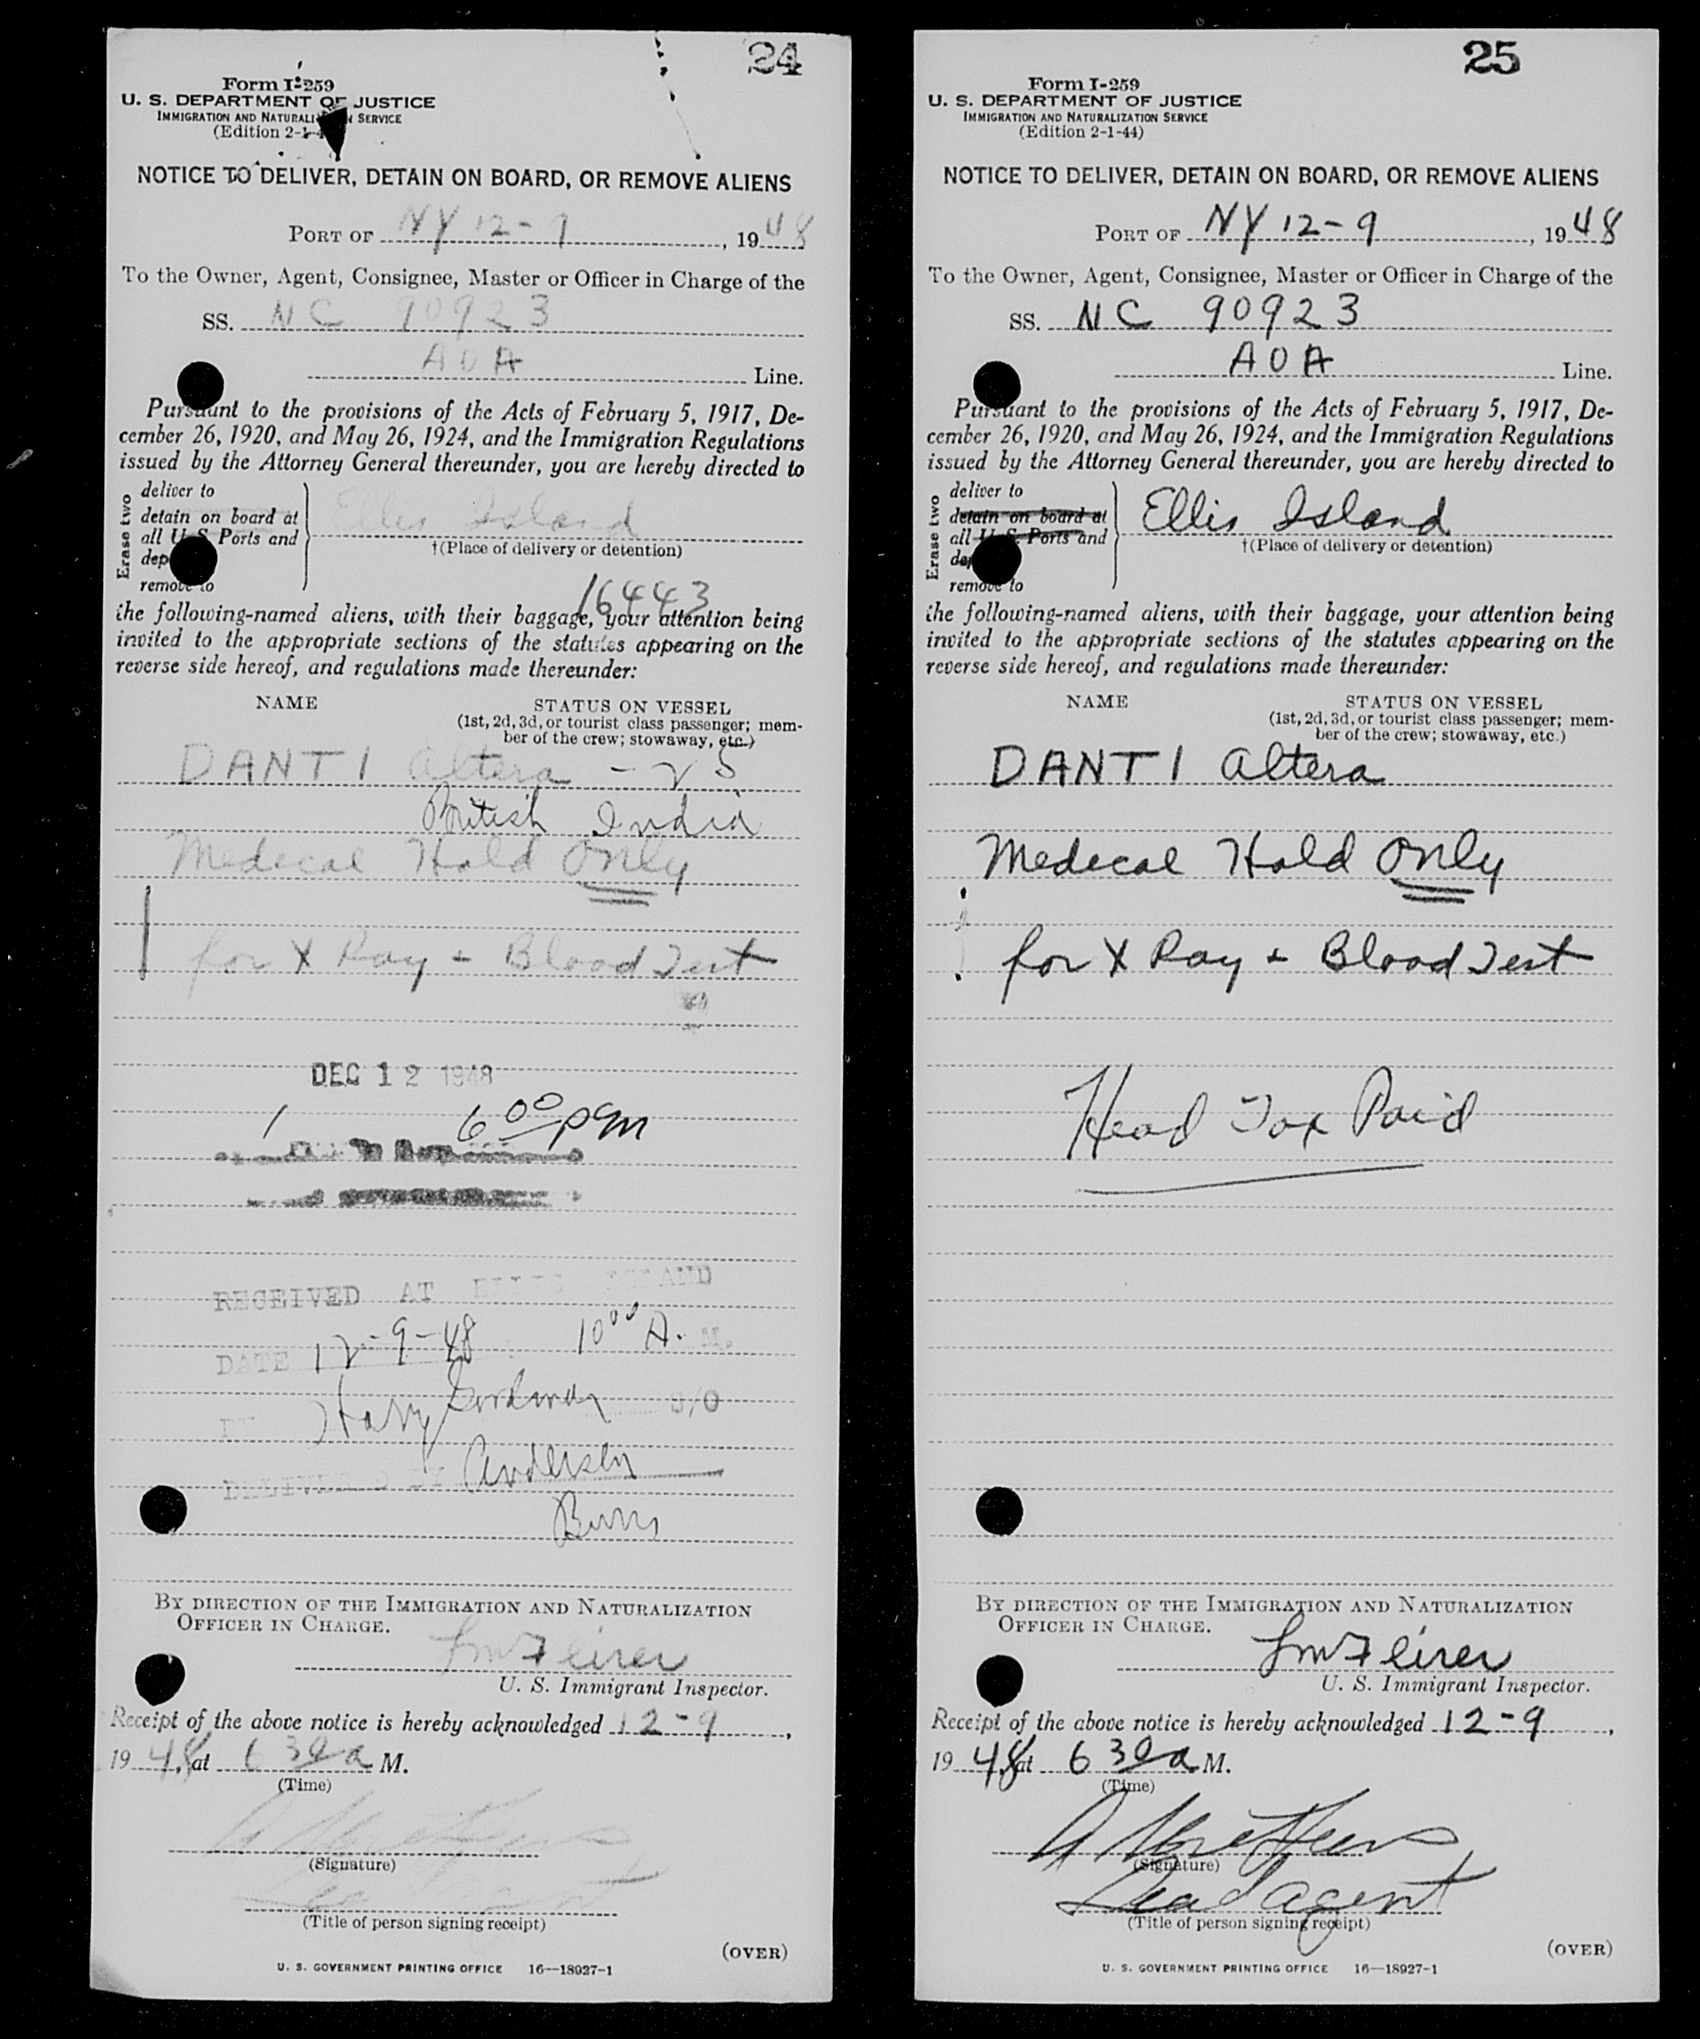 24
Form I-259
U. S. DEPARTMENT OF JUSTICE
IMMIGRATION AND NATURALIZATION SERVICE
(Edition 2-1-4
NOTICE TO DELIVER, DETAIN ON BOARD, OR REMOVE ALIENS
PORT OF NY 12-9, 1948
To the Owner, Agent, Consignee, Master or Officer in Charge of the
SS. NC 90923
AOA Line.
Pursuant to the provisions of the Acts of February 5, 1917, De-
cember 26, 1920, and May 26, 1924, and the Immigration Regulations
issued by the Attorney General thereunder, you are hereby directed to
Erase two
deliver to
detain on board at
all U. S. Ports and
dep
remove to
Ellis Island
†(Place of delivery or detention)
16443
the following-named aliens, with their baggage, your attention being
invited to the appropriate sections of the statutes appearing on the
reverse side hereof, and regulations made thereunder:
NAME STATUS ON VESSEL
(1st, 2d, 3d, or tourist class passenger; mem-
ber of the crew; stowaway, etc.)
DANTI Altera - 25
British India
Medecal Hold Only
for X Ray + Blood Test
DEC 12 1948
1 6 00 pm
RECEIVED AT ELLIS ISLAND
DATE 12-9-48 10 00 A. M.
Harry S/O
DELIVERED BY Andersen
Burns
BY DIRECTION OF THE IMMIGRATION AND NATURALIZATION
OFFICER IN CHARGE.
U. S. Immigrant Inspector.
Receipt of the above notice is hereby acknowledged 12-9,
1948, at 6 30 a M.
(Time)
(Signature)
Lead Agent
(Title of person signing receipt)
(OVER)
U. S. GOVERNMENT PRINTING OFFICE 16—18927-1
25
Form I-259
U. S. DEPARTMENT OF JUSTICE
IMMIGRATION AND NATURALIZATION SERVICE
(Edition 2-1-44)
NOTICE TO DELIVER, DETAIN ON BOARD, OR REMOVE ALIENS
PORT OF NY 12-9, 1948
To the Owner, Agent, Consignee, Master or Officer in Charge of the
SS. NC 90923
AOA Line.
Pursuant to the provisions of the Acts of February 5, 1917, De-
cember 26, 1920, and May 26, 1924, and the Immigration Regulations
issued by the Attorney General thereunder, you are hereby directed to
Erase two
deliver to
detain on board at
all U. S. Ports and
dep
remove to
Ellis Island
†(Place of delivery or detention)
the following-named aliens, with their baggage, your attention being
invited to the appropriate sections of the statutes appearing on the
reverse side hereof, and regulations made thereunder:
NAME STATUS ON VESSEL
(1st, 2d, 3d, or tourist class passenger; mem-
ber of the crew; stowaway, etc.)
DANTI Altera
Medecal Hold Only
for X Ray + Blood Test
Head Tax Paid
BY DIRECTION OF THE IMMIGRATION AND NATURALIZATION
OFFICER IN CHARGE.
U. S. Immigrant Inspector.
Receipt of the above notice is hereby acknowledged 12-9,
1948, at 6 30 a M.
(Time)
(Signature)
Lead Agent
(Title of person signing receipt)
(OVER)
U. S. GOVERNMENT PRINTING OFFICE 16—18927-1